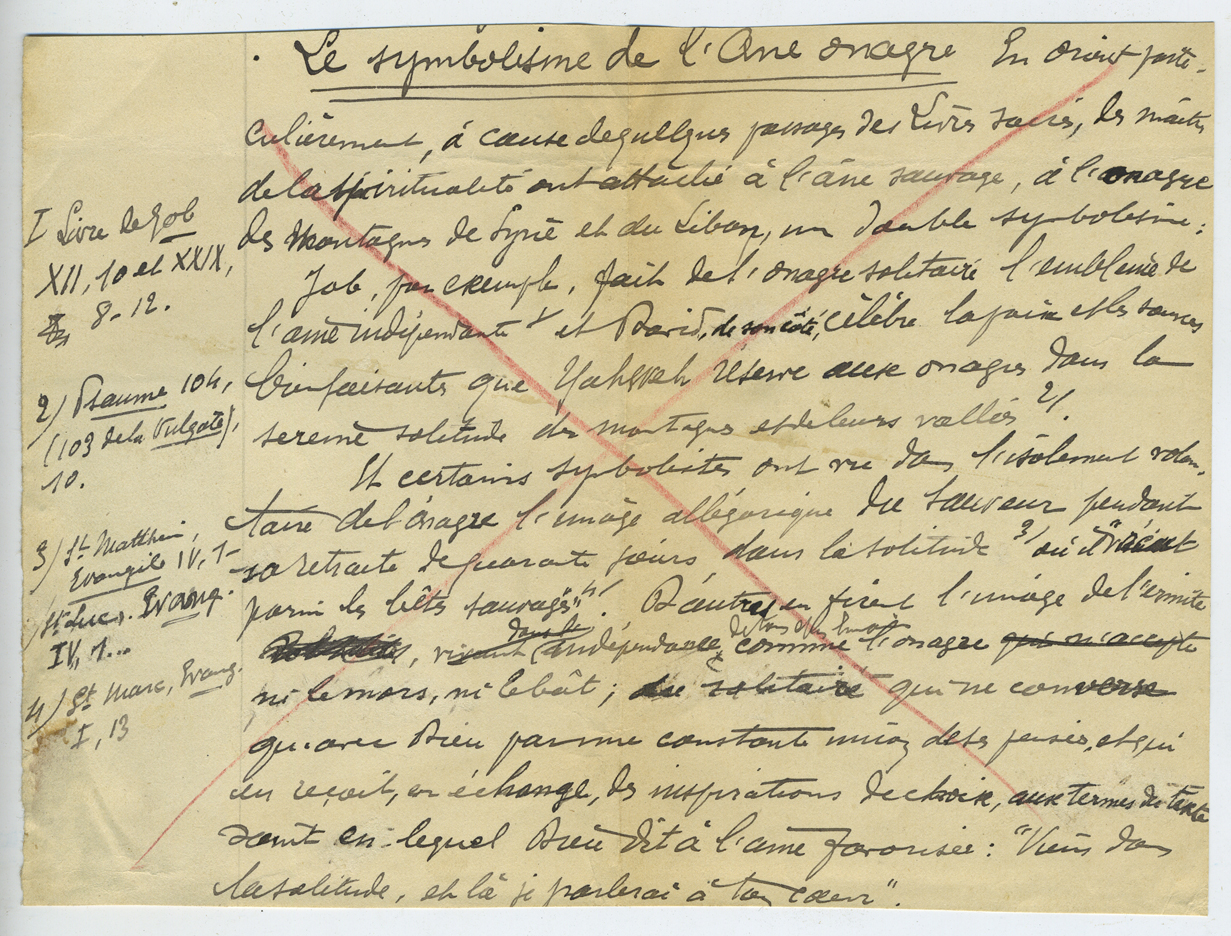 Le symbolisme de l'Ane onagre En orient parti-
culièrement, à cause de quelques passages des Livres sacrés, des maîtres
de la spiritualité ont attaché à l'âne sauvage, à l'onagre
des montagnes de Syrie et du Liban, un double symbolisme :
Job, par exemple, fait de l'onagre solitaire l'emblème de
l'âme indépendante 1/ et David, de son côté, célèbre la paix et les sources
bienfaisantes que Yahweh réserve aux onagres dans la
sereine solitude des montagnes et de leurs vallées 2/.
Et certains symbolistes ont vu dans l'isolement volon-
taire de l'onagre l'image allégorique du Sauveur pendant
sa retraite de quarante jours dans la solitude 3/ où il "vécut
parmi les bêtes sauvages" 4/. D'autres en firent l'image de l'ermite
vivant dans l'indépendance comme l'onagre qui n'accepte
ni le mors, ni le bât ; solitaire qui ne converse
qu'avec Dieu par une constante union de ses pensées, et qui
en reçoit, en échange, des inspirations de choix, aux termes du texte
saint en lequel Dieu dit à l'âme favorisée : "Viens dans
la solitude, et là je parlerai à ton cœur".
I Livre de Job
XII, 10 et XXIX,
8-12.
2/ Psaume 104,
(103 de la Vulgate),
10.
3/ St Matthieu,
Evangile IV, 1-
St Luc. Evang.
IV, 1...
4/ St Marc, Evang.
I, 13